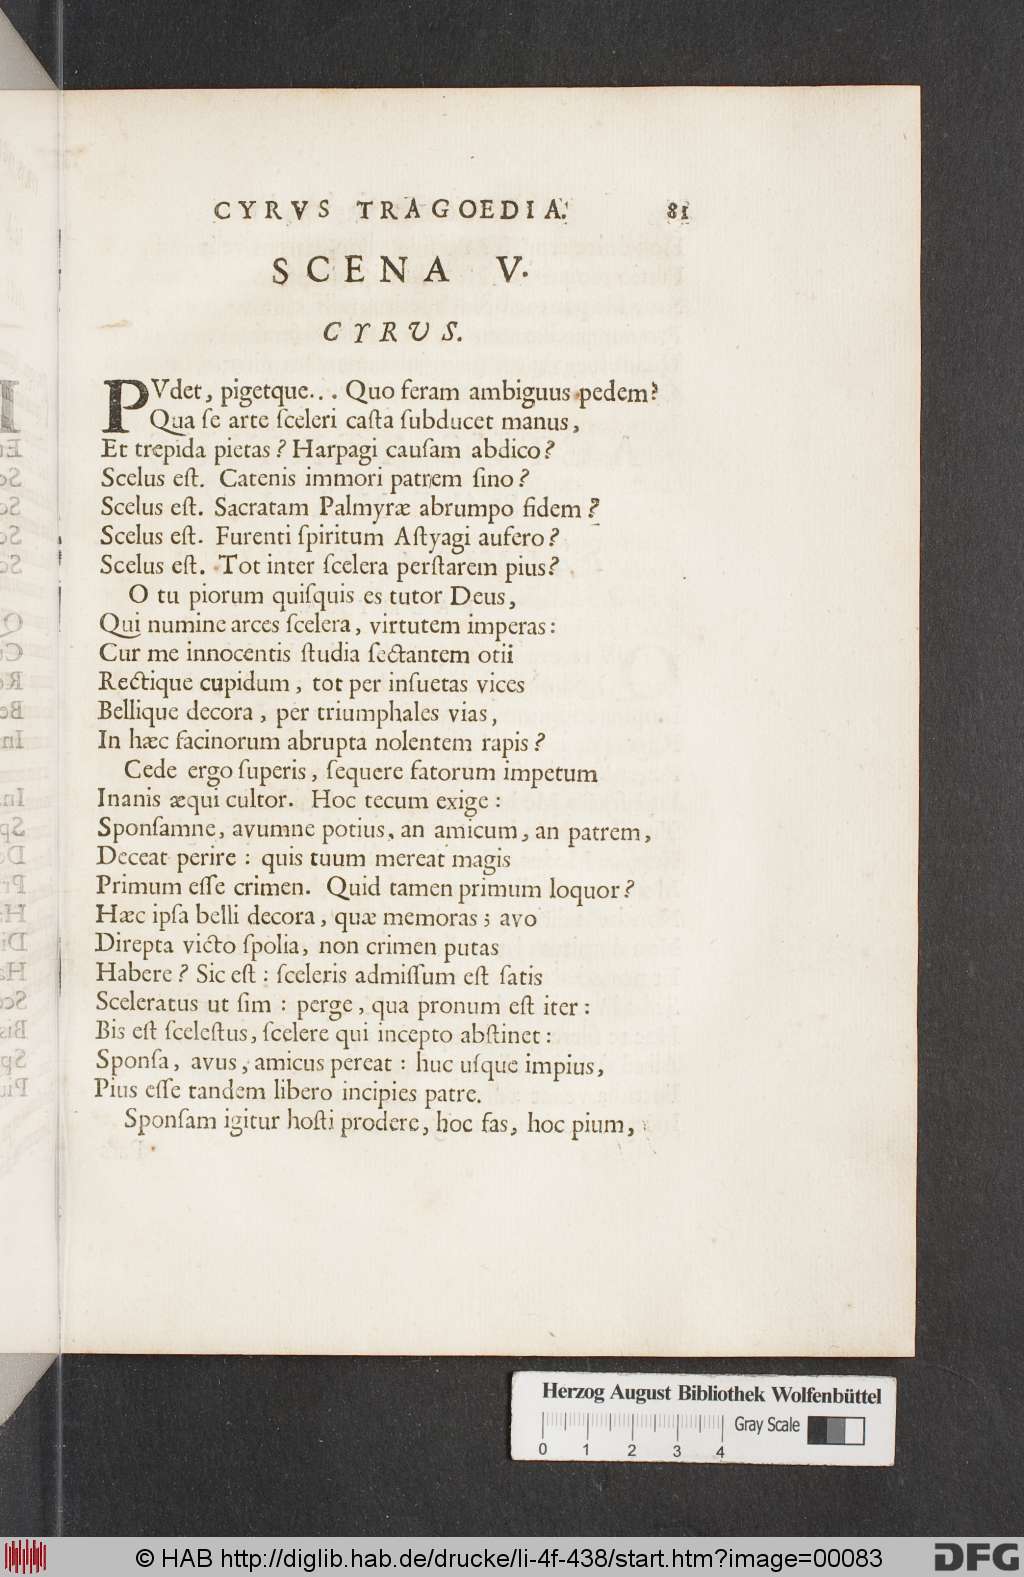 CYRVS TRAGOEDIA. 81
SCENA V.
CYRVS.
PVdet, pigetque... Quo feram ambiguus pedem?
Qua ſe arte ſceleri caſta ſubducet manus,
Et trepida pietas? Harpagi cauſam abdico?
Scelus eſt. Catenis immori patrem ſino?
Scelus eſt. Sacratam Palmyræ abrumpo fidem?
Scelus eſt. Furenti ſpiritum Aſtyagi aufero?
Scelus eſt. Tot inter ſcelera perſtarem pius?
O tu piorum quiſquis es tutor Deus,
Qui numine arces ſcelera, virtutem imperas:
Cur me innocentis ſtudia ſectantem otii
Rectique cupidum, tot per inſuetas vices
Bellique decora, per triumphales vias,
In hæc facinorum abrupta nolentem rapis?
Cede ergo ſuperis, ſequere fatorum impetum
Inanis æqui cultor. Hoc tecum exige:
Sponſamne, avumne potius, an amicum, an patrem,
Deceat perire: quis tuum mereat magis
Primum eſſe crimen. Quid tamen primum loquor?
Hæc ipſa belli decora, quæ memoras; avo
Direpta victo ſpolia, non crimen putas
Habere? Sic eſt: ſceleris admiſſum eſt ſatis
Sceleratus ut ſim: perge, qua pronum eſt iter:
Bis eſt ſceleſtus, ſcelere qui incepto abſtinet:
Sponſa, avus, amicus pereat: huc uſque impius,
Pius eſſe tandem libero incipies patre.
Sponſam igitur hoſti prodere, hoc fas, hoc pium,
Herzog August Bibliothek Wolfenbüttel
Gray Scale
0 1 2 3 4
© HAB http://diglib.hab.de/drucke/li-4f-438/start.htm?image=00083
DFG